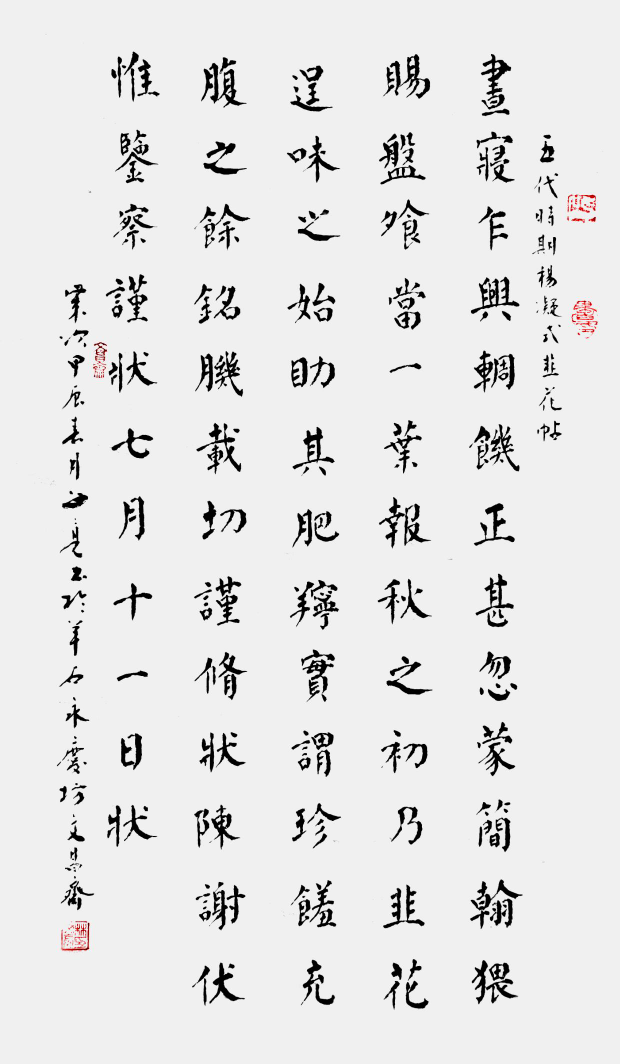 五代時期楊凝式韭花帖
晝寢乍興輖饑正甚忽蒙簡翰猥
賜盤飧當一葉報秋之初乃韭花
逞味之始助其肥羜實謂珍饈充
腹之餘銘膮載切謹脩狀陳謝伏
惟鑒察謹狀七月十一日狀
歲次甲辰春月 書於羊石永慶坊文昌齋